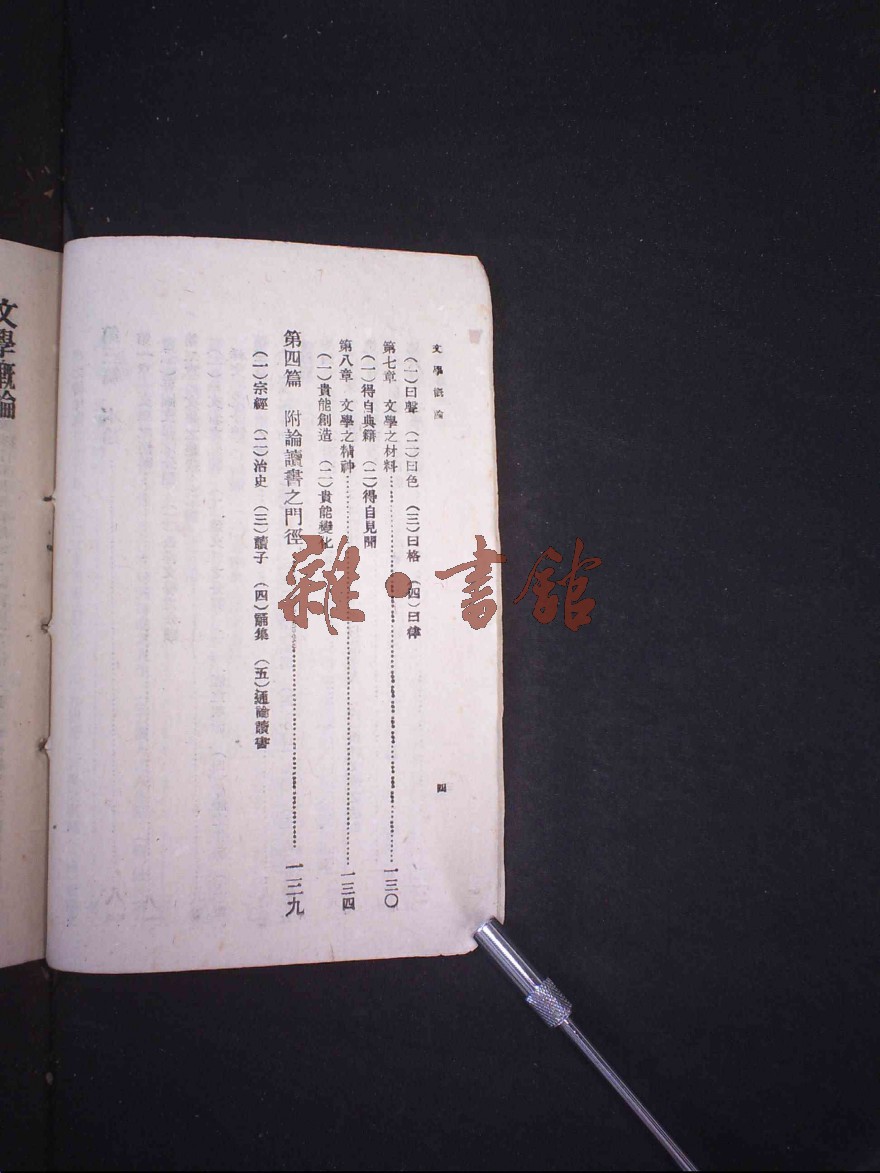 文學概論
四
（一）曰聲　（二）曰色　（三）曰格　（四）曰律
第七章　文學之材料……一三〇
（一）得自典籍　（二）得自見聞
第八章　文學之精神……一三四
（一）貴能創造　（二）貴能變化
第四篇　附論讀書之門徑……一三九
（一）宗經　（二）治史　（三）讀子　（四）誦集　（五）通論讀書
文學概論
雜・書館